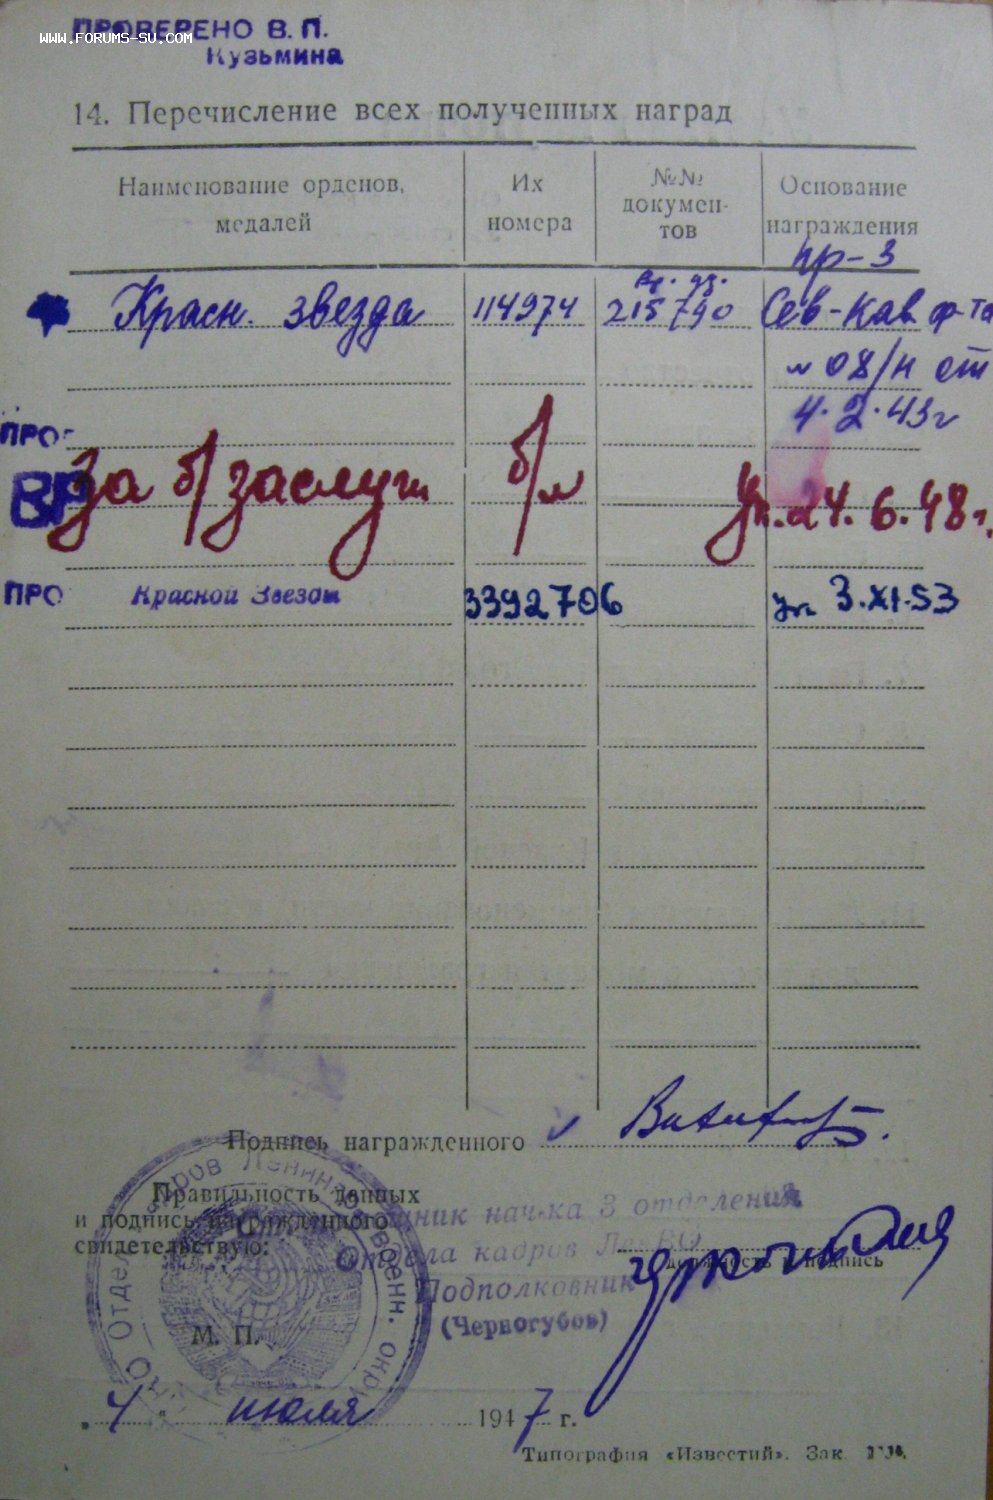 ПРОВЕРЕНО В. П.
www.forums-su.com
Кузьмина
14. Перечисление всех полученных наград
Наименование орденов, медалей
Их номера
№№ докумен-тов
Основание награждения
пр-3
Красн. звезда 114974 215790 Сев-Кав ф-та
№ 08/н от
4.2.43г
ПРО
ВР
за б/заслуги б/н Ук. 24.6.48г.
ПРО Красной Звезды 3392706 ук 3.XI.53
Подпись награжденного
Правильность данных
и подпись награжденного
свидетельствую:
нач-ка 3 отделения
Отдела кадров ЛенВО
должность и подпись
Подполковник
(Черногубов)
М. П.
„4" июля 1947 г.
Типография «Известий». Зак.